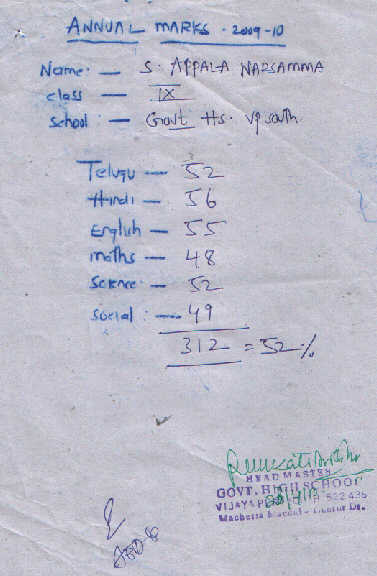 ANNUAL MARKS - 2009-10
Name: — S. APPALA NARSAMMA
class — IX
school: — Govt Hs. Vp south
Telugu — 52
Hindi — 56
English — 55
maths — 48
Science — 52
Social: — 49
312 = 52%
HEAD MASTER
GOVT. HIGH SCHOOL
522 435